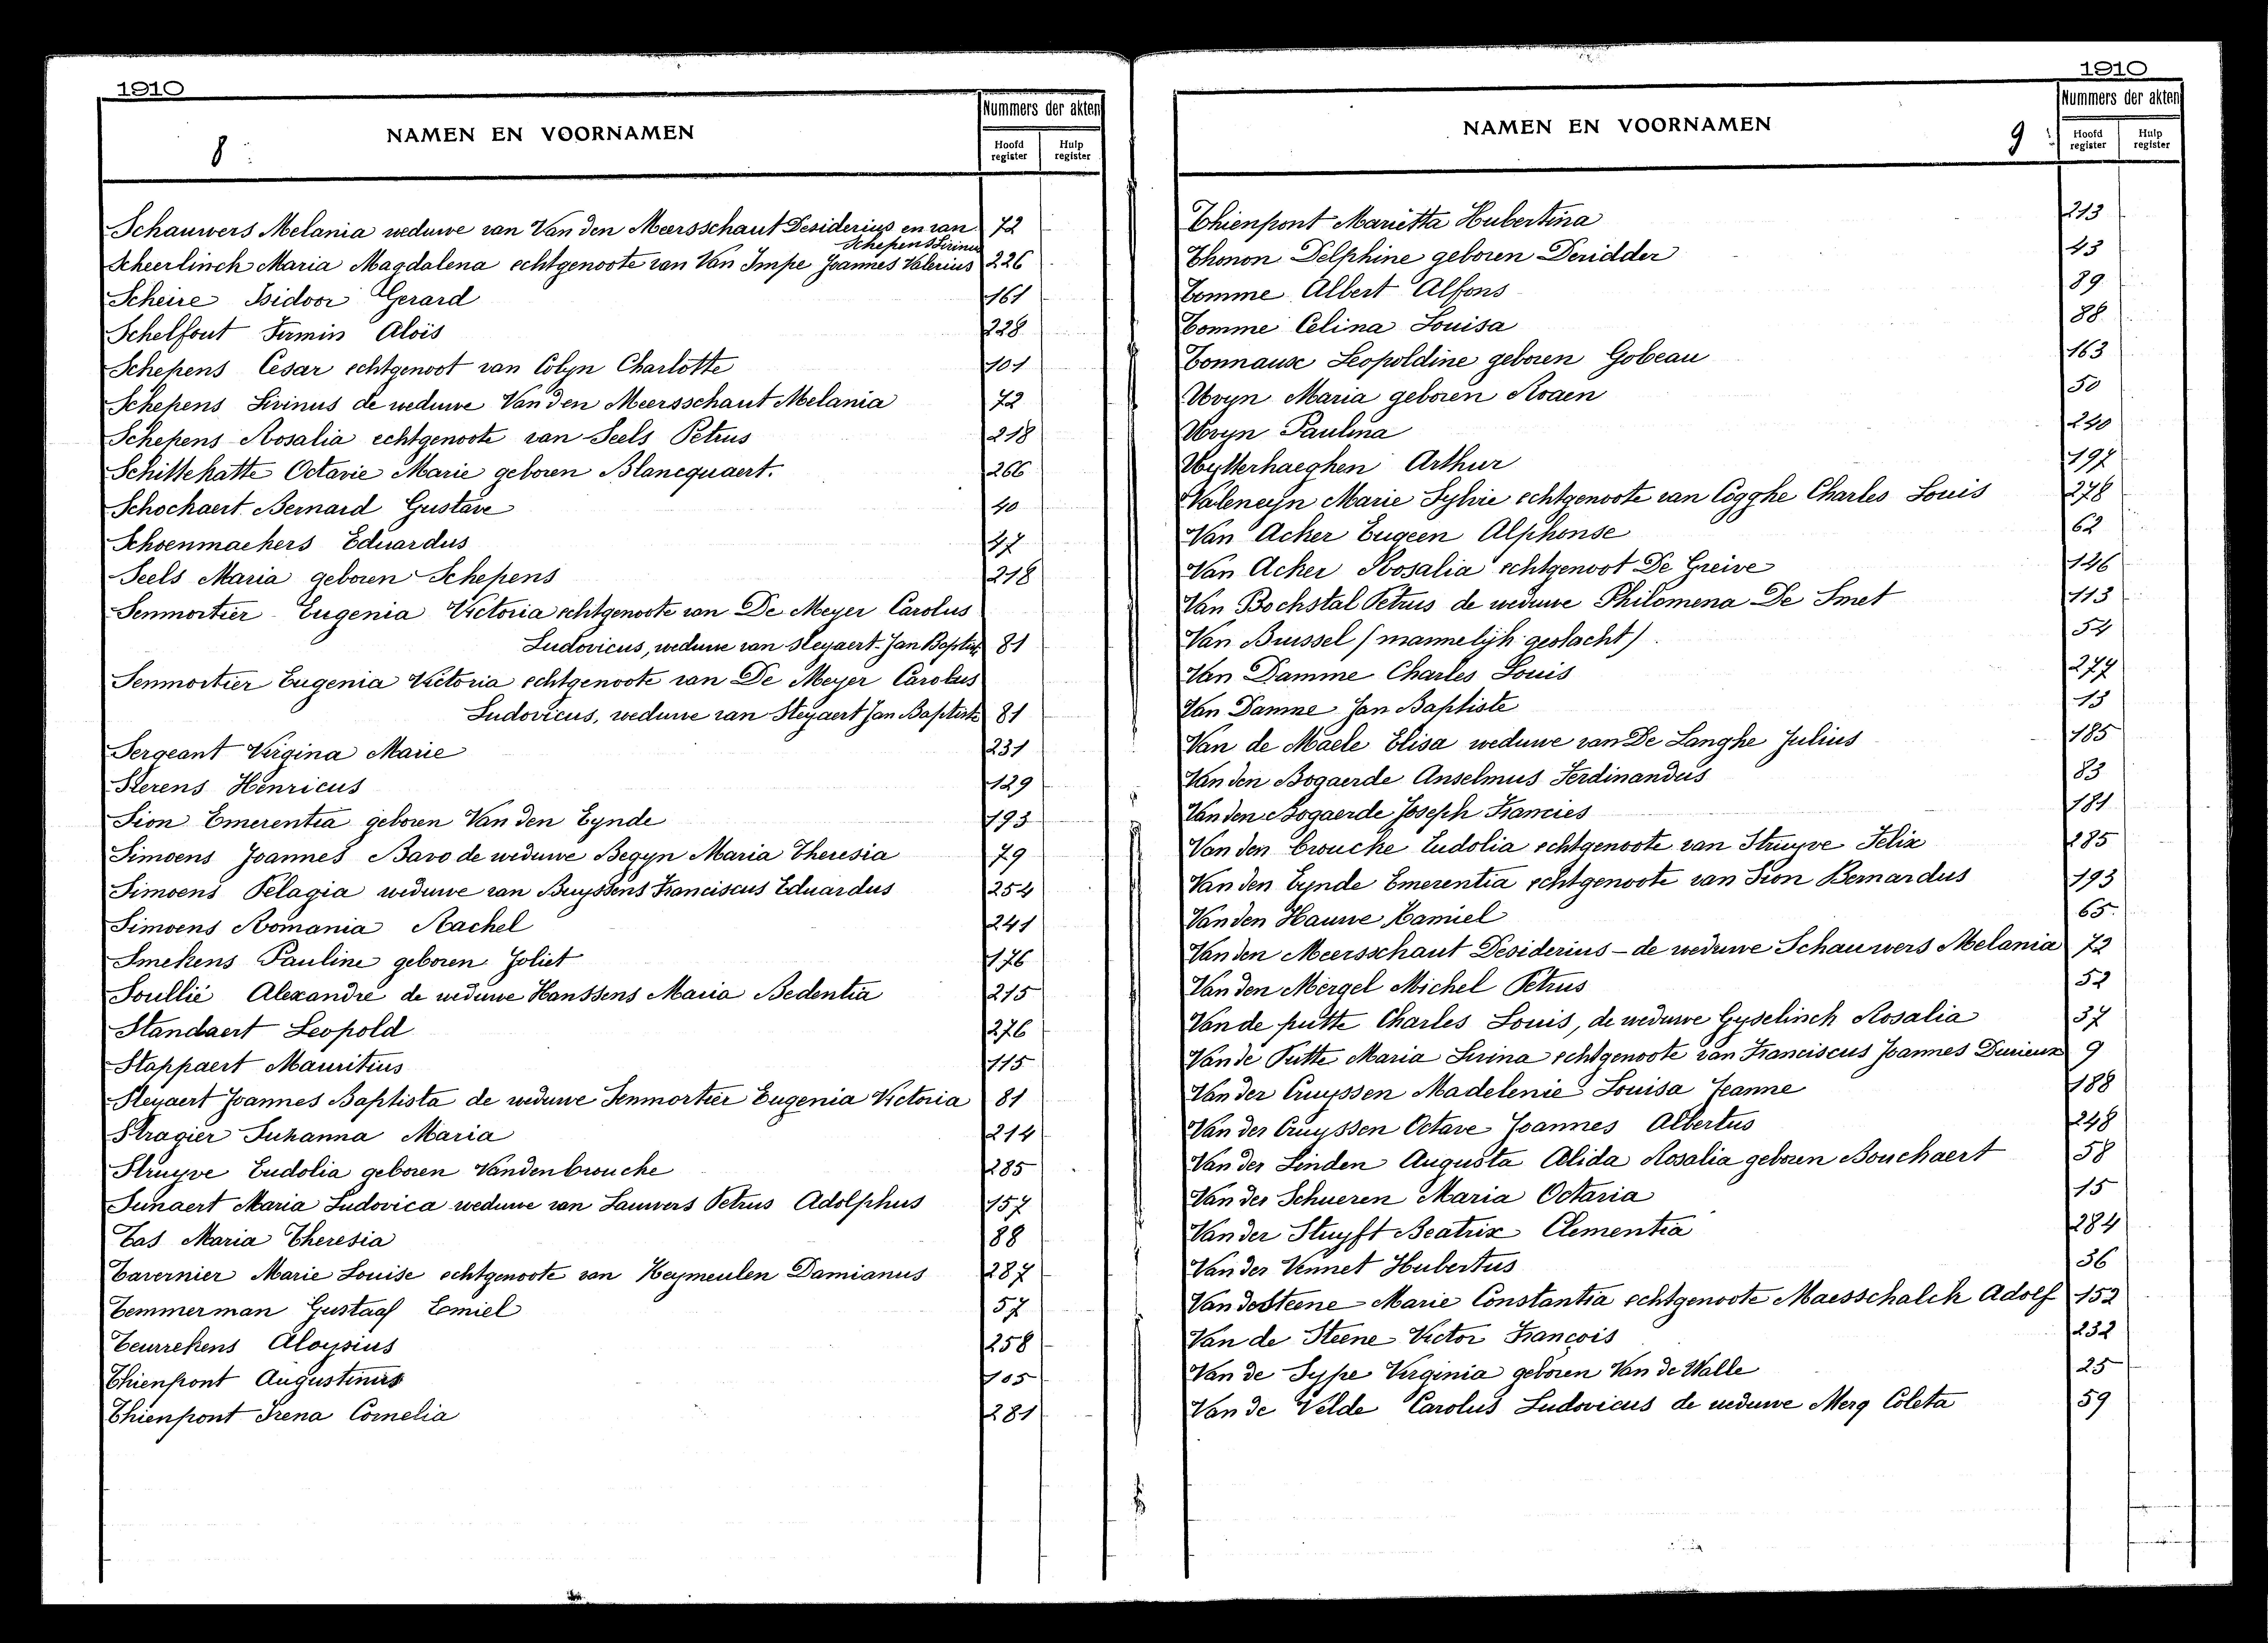 1910
8
NAMEN EN VOORNAMEN
Nummers der akten
Hoofd register
Hulp register
Schauwers Melania weduwe van Van den Meersschaut Desiderius en van 72
Schepens Livinus
Scheerlinck Maria Magdalena echtgenoote van Van Impe Joannes Valerius 226
Scheire Isidoor Gerard 161
Schelfout Firmin Aloïs 228
Schepens Cesar echtgenoot van Colyn Charlotte 101
Schepens Livinus de weduwe Van den Meersschaut Melania 72
Schepens Rosalia echtgenoote van Seels Petrus 218
Schittekatte Octavie Marie geboren Blancquaert. 266
Schockaert Bernard Gustave 40
Schoenmaekers Eduardus 47
Seels Maria geboren Schepens 218
Senmortier Eugenia Victoria echtgenoote van De Meyer Carolus
Ludovicus, weduwe van Steyaert Jan Baptist 81
Senmortier Eugenia Victoria echtgenoote van De Meyer Carolus
Ludovicus, weduwe van Steyaert Jan Baptiste 81
Sergeant Virgina Marie 231
Sierens Henricus 129
Sion Emerentia geboren Van den Eynde 193
Simoens Joannes Bavo de weduwe Begyn Maria Theresia 79
Simoens Pelagia weduwe van Buyssens Franciscus Eduardus 254
Simoens Romania Rachel 241
Smekens Pauline geboren Joliet 176
Soullié Alexandre de weduwe Hanssens Maria Bedentia 215
Standaert Leopold 276
Stappaert Mauritius 115
Steyaert Joannes Baptista de weduwe Senmortier Eugenia Victoria 81
Stragier Suzanna Maria 214
Struyve Eudolia geboren Vandenbroucke 285
Sunaert Maria Ludovica weduwe van Lauwers Petrus Adolphus 157
Tas Maria Theresia 88
Tavernier Marie Louise echtgenoote van Heymeulen Damianus 287
Temmerman Gustaaf Emiel 57
Teurrekens Aloysius 258
Thienpont Augustinus 105
Thienpont Irena Cornelia 281
1910
NAMEN EN VOORNAMEN
9
Nummers der akten
Hoofd register
Hulp register
Thienpont Marietta Hubertina 213
Thonon Delphine geboren Deridder 43
Tomme Albert Alfons 89
Tomme Celina Louisa 88
Tonnaux Leopoldine geboren Gobeau 163
Uvyn Maria geboren Roaen 50
Uvyn Paulina 240
Uytterhaeghen Arthur 197
Valeneyn Marie Sylvie echtgenoote van Cogghe Charles Louis 278
Van Acker Eugeen Alphonse 62
Van Acker Rosalia echtgenoot De Greive 146
Van Bockstal Petrus de weduwe Philomena De Smet 113
Van Brussel (mannelijk geslacht) 54
Van Damme Charles Louis 277
Van Damme Jan Baptiste 13
Van de Maele Elisa weduwe van De Langhe Julius 185
Van den Bogaerde Anselmus Ferdinandus 83
Van den Bogaerde Joseph Francies 181
Van den broucke Eudolia echtgenoote van Struyve Felix 285
Van den Eynde Emerentia echtgenoote van Sion Bernardus 193
Van den Hauwe Kamiel 65
Van den Meersschaut Desiderius - de weduwe Schauwers Melania 72
Van den Mergel Michel Petrus 52
Van de putte Charles Louis, de weduwe Gyselinck Rosalia 37
Van de Putte Maria Livina echtgenoote van Franciscus Joannes Durieux 9
Van der Cruyssen Madelenie Louisa Jeanne 188
Van der Cruyssen Octave Joannes Albertus 248
Van der Linden Augusta Alida Rosalia geboren Bouchaert 58
Van der Schueren Maria Octavia 15
Van der Stuyft Beatrix Clementia 284
Van der Vennet Hubertus 36
Van de Steene Marie Constantia echtgenoote Maesschalck Adolf 152
Van de Steene Victor François 232
Van de Sype Virginia geboren Van de Walle 25
Van de Velde Carolus Ludovicus de weduwe Merg Coleta 59